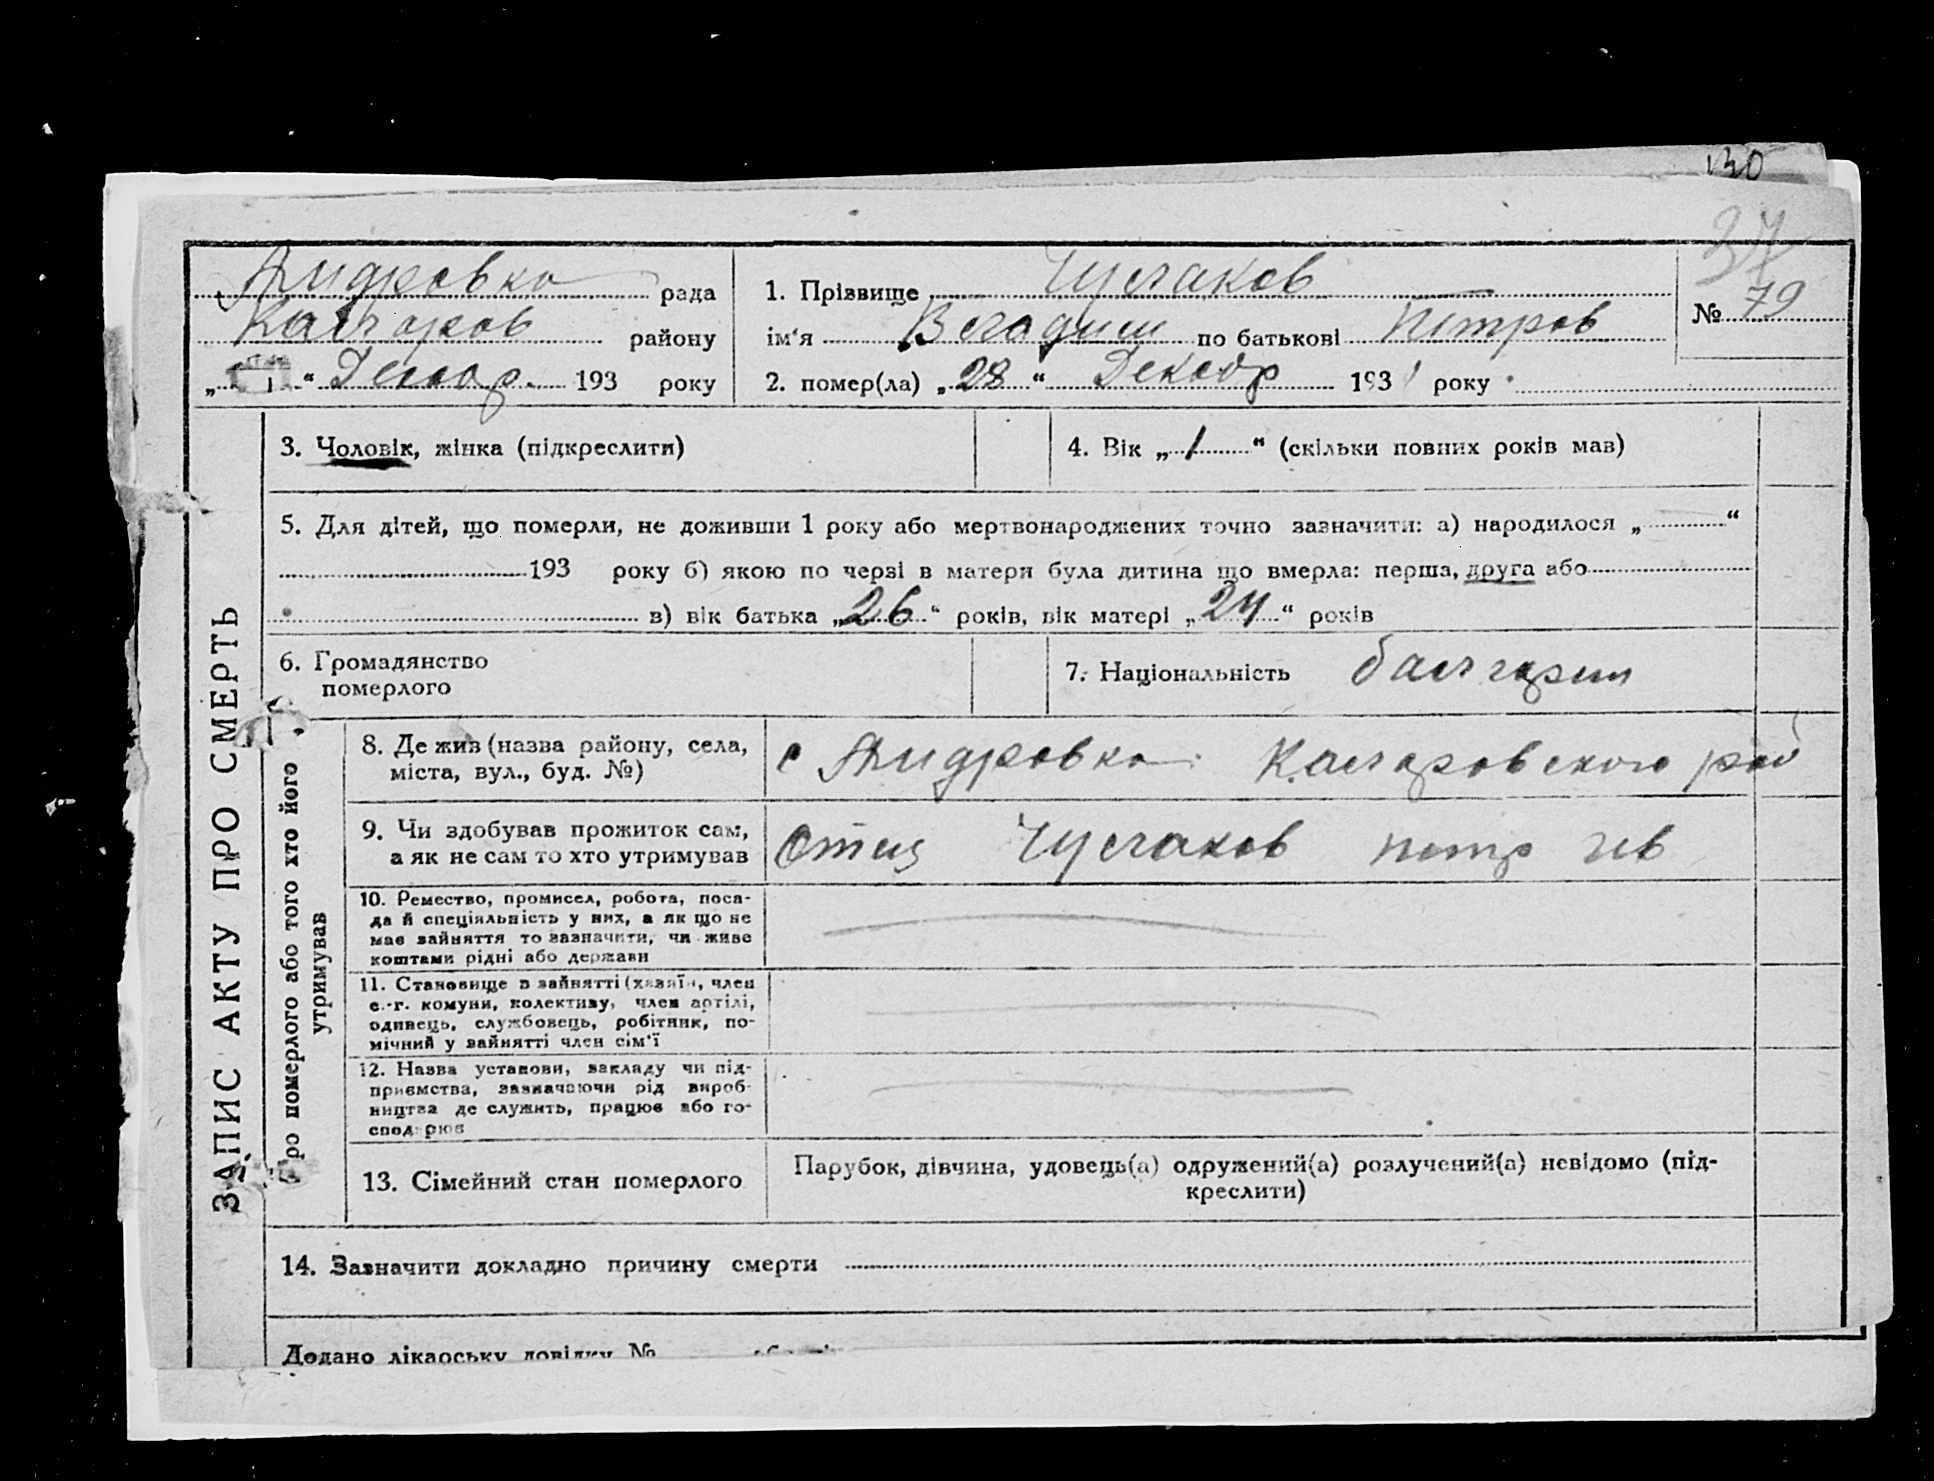 130
37
Андровка рада
Калгаров району
„ “ Декабр. 193 року
1. Прізвище Чулаков
ім‘я Владим по батькові Петров
№ 79
2. помер(ла) „28“ Декабр 1931 року
ЗАПИС АКТУ ПРО СМЕРТЬ
3. Чоловік, жінка (підкреслити)
4. Вік „1“ (скільки повних років мав)
5. Для дітей, що померли, не доживши 1 року або мертвонароджених точно зазначити: а) народилося „ “
193 року б) якою по черзі в матери була дитина що вмерла: перша, друга або
в) вік батька „26“ років, вік матері „24“ років
6. Громадянство
померлого
7. Національність болгарин
ро померлого або того хто його
утримував
8. Де жив (назва району, села,
міста, вул., буд. №)
с Андровка Калгаровского рай
9. Чи здобував прожиток сам,
а як не сам то хто утримував
Отец Чулаков Петр
10. Ремество, промисел, робота, поса-
да й спеціяльність у них, а як що не
має зайняття то зазначити, чи живе
коштами рідні або держави
11. Становище в зайнятті (хазяїн, член
с.-г. комуни, колективу, член артілі,
одинець, службовець, робітник, по-
мічний у зайнятті член сім'ї
12. Назва установи, закладу чи під-
приємства, зазначаючи рід вироб-
ництва де служить, працює або го-
сподарює
13. Сімейний стан померлого
Парубок, дівчина, удовець(а) одружений(а) розлучений(а) невідомо (під-
креслити)
14. Зазначити докладно причину смерти
Додано лікарську довідку №